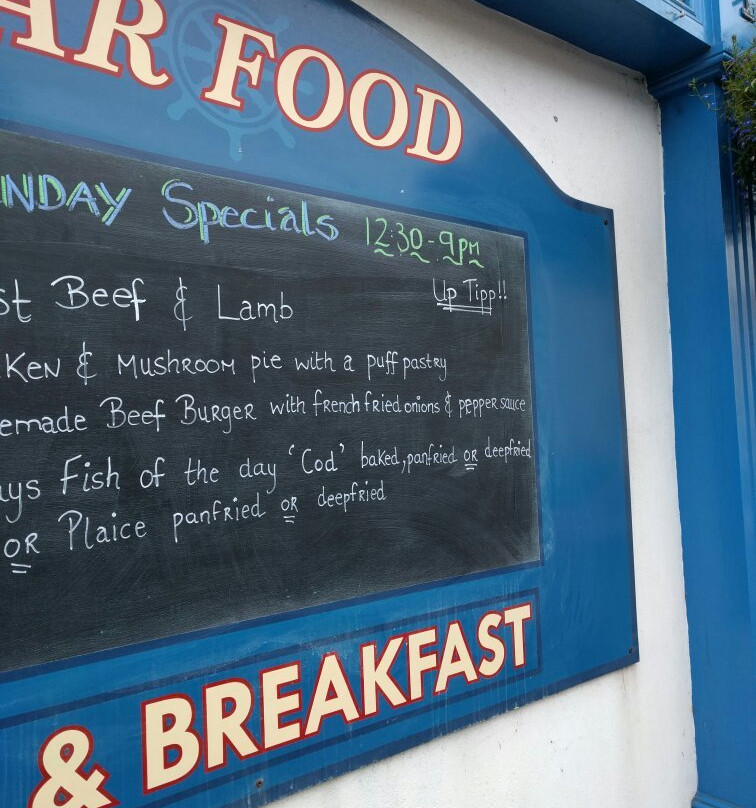 AR FOOD
NDAY Specials 12:30-9pm
st Beef & Lamb Up Tipp!!
KEN & MUSHROOM pie with a puff pastry
emade Beef BURGER with french fried onions & pepper sauce
ays Fish of the day 'Cod' baked, panfried OR deepfried
OR Plaice panfried OR deepfried
& BREAKFAST